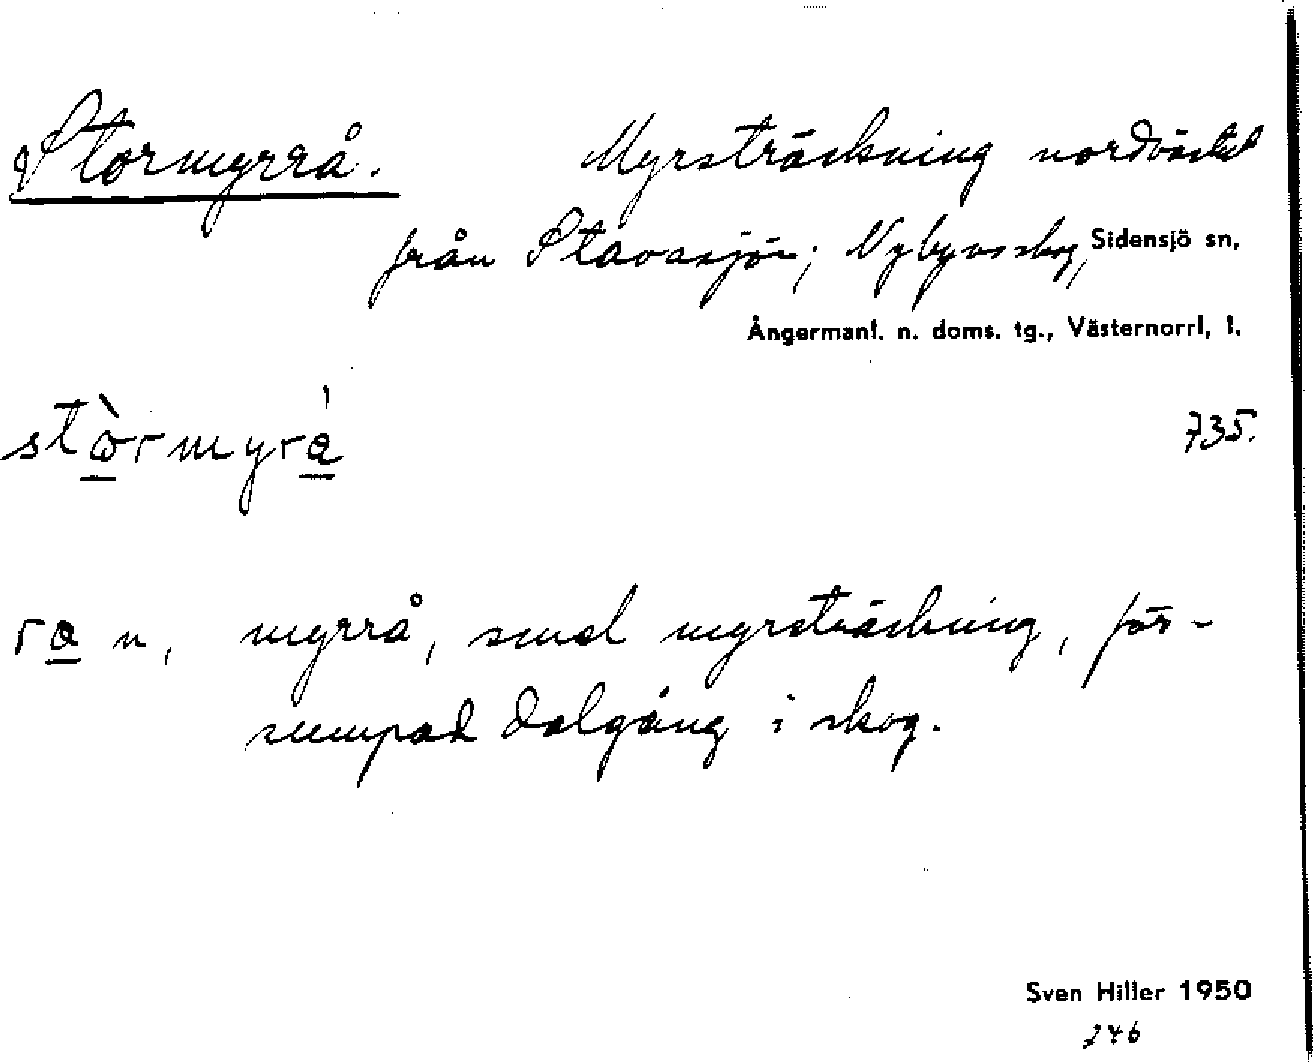 Stormyrrå. Myrsträckning nordväst
från Stavasjön; Nybynsskog, Sidensjö sn,
Ångermanl. n. doms. tg., Västernorrl, l.
735.
ra n, myrrå, smal myrsträckning, för-
sumpad dalgång i skog.
Sven Hiller 1950
246